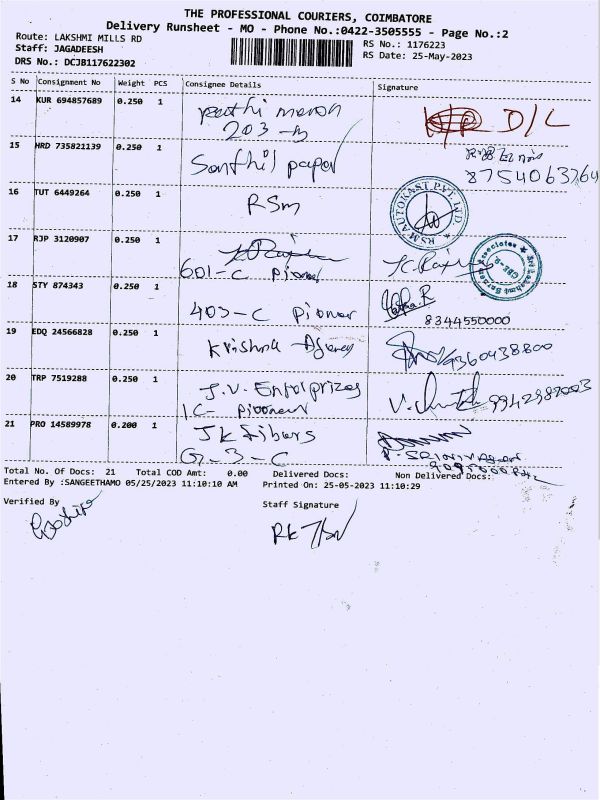 THE PROFESSIONAL COURIERS, COIMBATORE
Delivery Runsheet - MO - Phone No.:0422-3505555 - Page No.:2
Route: LAKSHMI MILLS RD
RS No.: 1176223
Staff: JAGADEESH
RS Date: 25-May-2023
DRS No.: DCJB117622302
S No Consignment No Weight PCS Consignee Details Signature
14 KUR 694857689 0.250 1
203-B
D/L
15 HRD 735821139 0.250 1 Santhil paper
8754063764
16 TUT 6449264 0.250 1 RSm
RSM AUTOKAST PVT. LTD.
17 RJP 3120907 0.250 1
601-C
18 STY 874343 0.250 1
403-C Pioner
8344550000
19 EDQ 24566828 0.250 1 Krishna Agency
9360438800
20 TRP 7519288 0.250 1 J.V. Enterprizes
1C-
21 PRO 14589978 0.200 1 Jk fibers
G-3-C
Total No. Of Docs: 21 Total COD Amt: 0.00 Delivered Docs: Non Delivered Docs:
Entered By :SANGEETHAMO 05/25/2023 11:10:10 AM Printed On: 25-05-2023 11:10:29
Verified By
Staff Signature